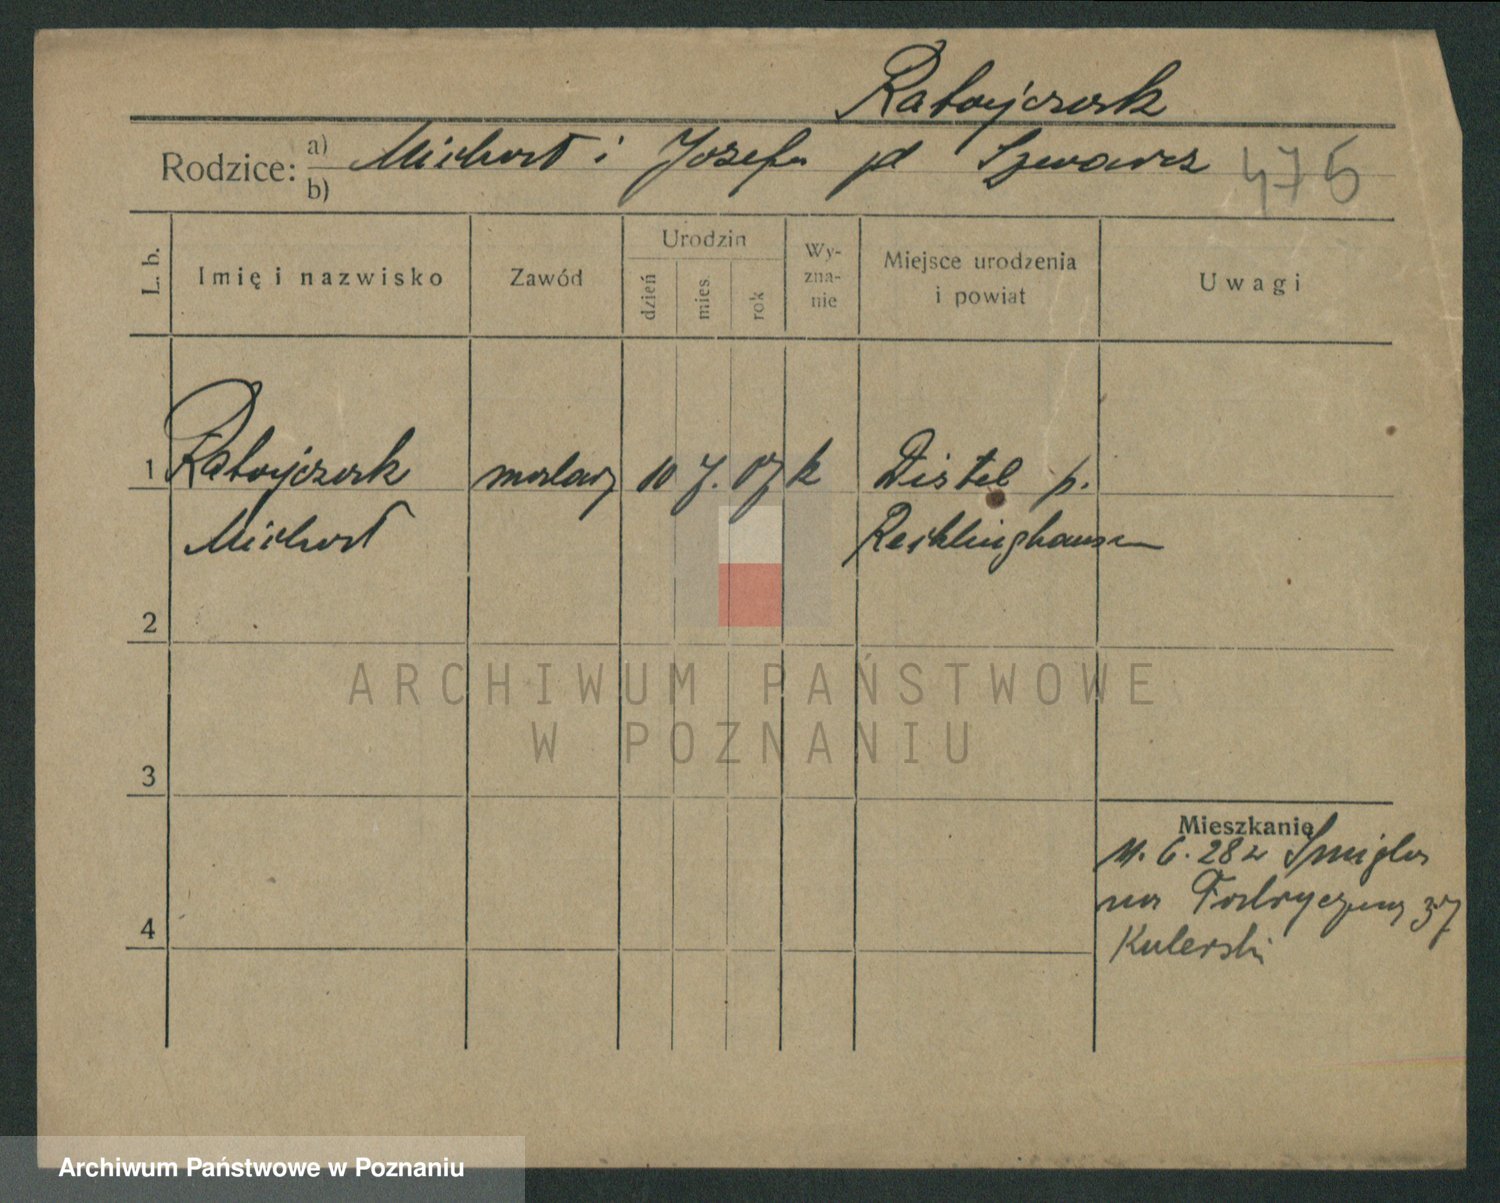 Ratajczak
Rodzice: a) Michał i Józefa zd Szwarc 476
b)
L. b. Imię i nazwisko Zawód Urodzin dzień mies. rok Wy-zna-nie Miejsce urodzenia i powiat Uwagi
1 Ratajczak malarz 10 7. 07 k Distel p.
Michał Recklinghausen
2
ARCHIWUM PAŃSTWOWE
W POZNANIU
3
Mieszkanie
11. 6. 28 z Śmigla
na Fabryczna 37
4 Kulerski
Archiwum Państwowe w Poznaniu